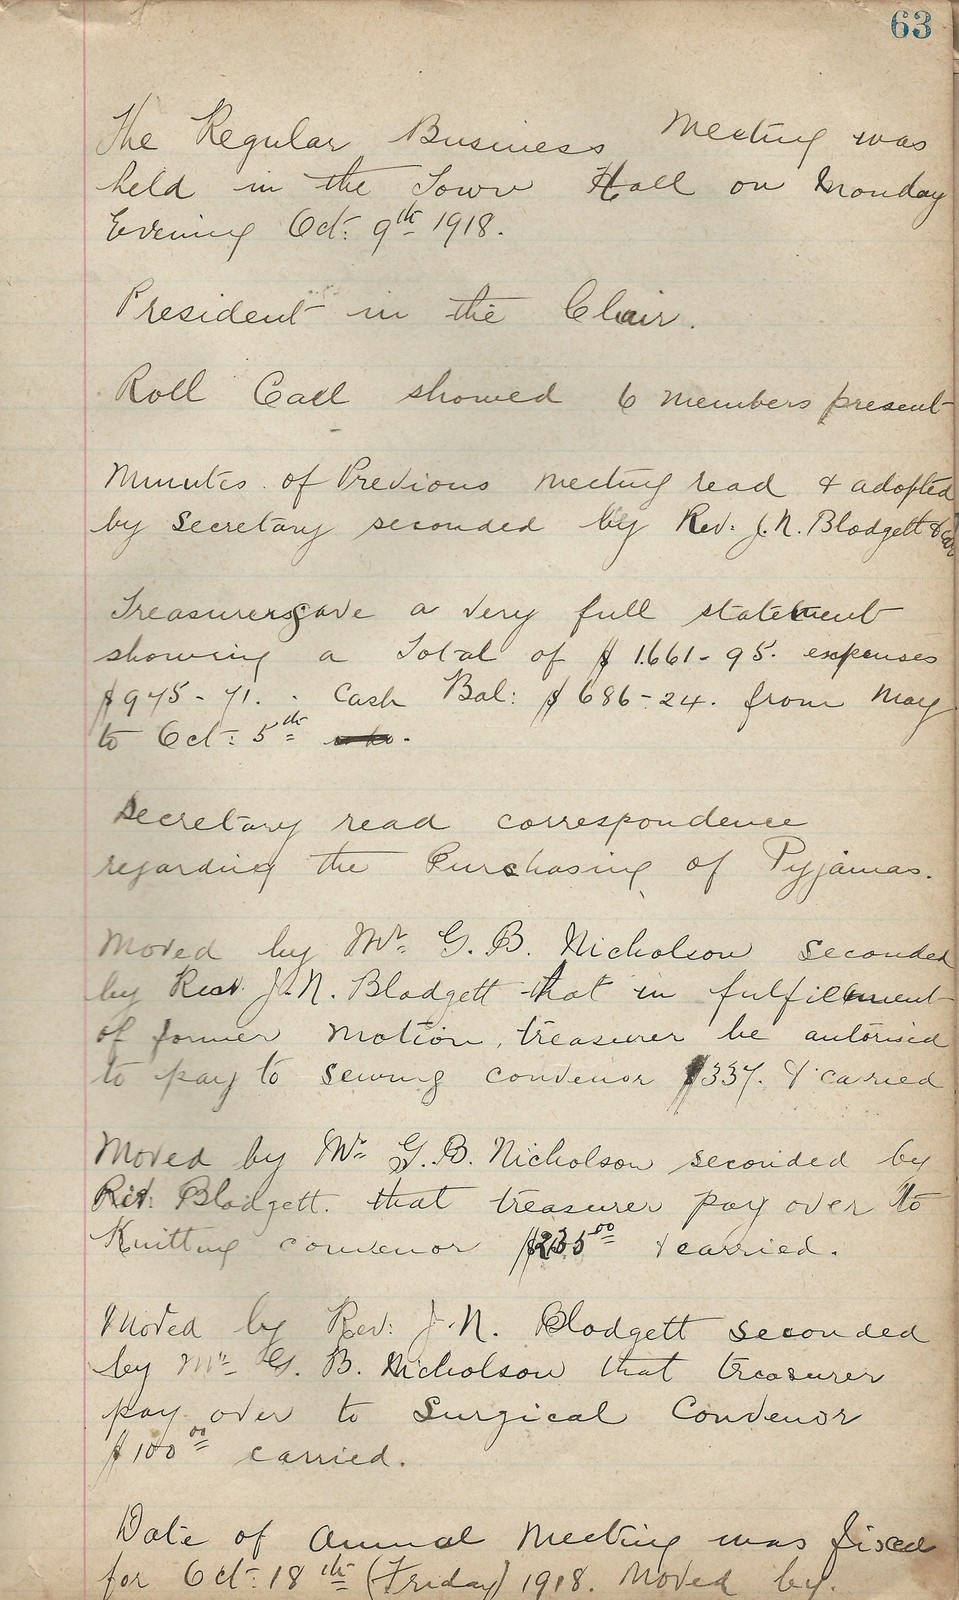 63
The Regular Business Meeting was
held in the Town Hall on Monday
Evening Oct: 9th 1918.
President in the Chair.
Roll Call showed 6 members present
Minutes of Previous meeting read & adopted
by Secretary seconded by Rev: J. N. Blodgett &
Treasurer gave a very full statement
showing a Total of $1661-95. expenses
$975-71. . Cash Bal: $686-24. from May
to Oct: 5th
Secretary read correspondence
regarding the Purchasing of Pyjamas.
Moved by Mr. G. B. Nicholson seconded
by Rev. J. N. Blodgett that in fulfillment
of former motion, treasurer be autorised
to pay to sewing convenor $337. & carried
Moved by Mr G. B. Nicholson seconded by
Rev: Blodgett. that treasurer pay over to
Knitting convenor $235.00 & carried.
Moved by Rev: J. N. Blodgett seconded
by Mr G. B. Nicholson that treasurer
pay over to Surgical Convenor
$100.00 carried.
Date of Annual Meeting was fixed
for Oct: 18th (Friday) 1918. Moved by.